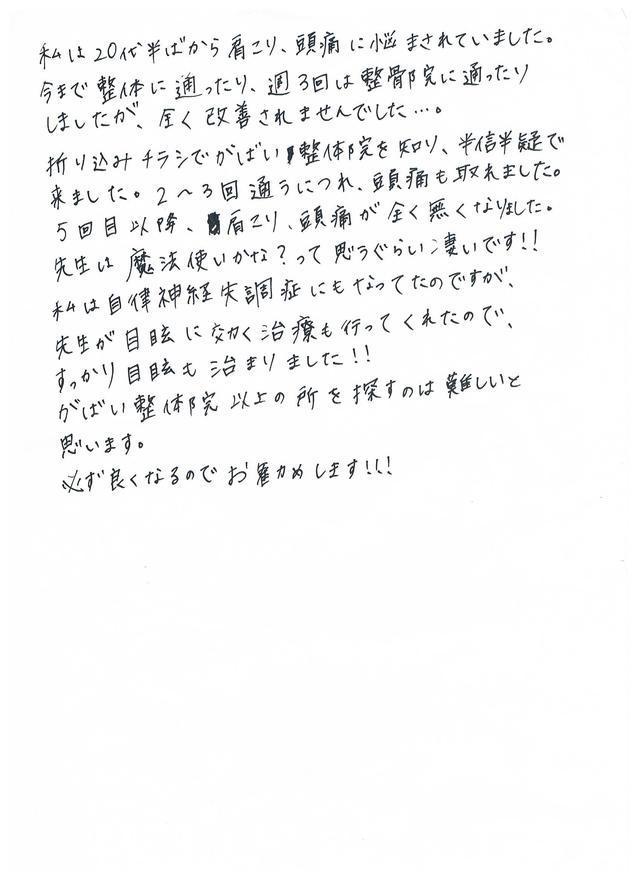 私は20代半ばから肩こり、頭痛に悩まされていました。
今まで整体に通ったり、週3回は整骨院に通ったり
しましたが、全く改善されませんでした…。
折り込みチラシでがばい整体院を知り、半信半疑で
来ました。2～3回通うにつれ、頭痛も取れました。
5回目以降、肩こり、頭痛が全く無くなりました。
先生は魔法使いかな?って思うぐらい凄いです!!
私は自律神経失調症にもなってたのですが、
先生が目眩に効く治療も行ってくれたので、
すっかり目眩も治まりました!!
がばい整体院以上の所を探すのは難しいと
思います。
必ず良くなるのでお薦めします!!!